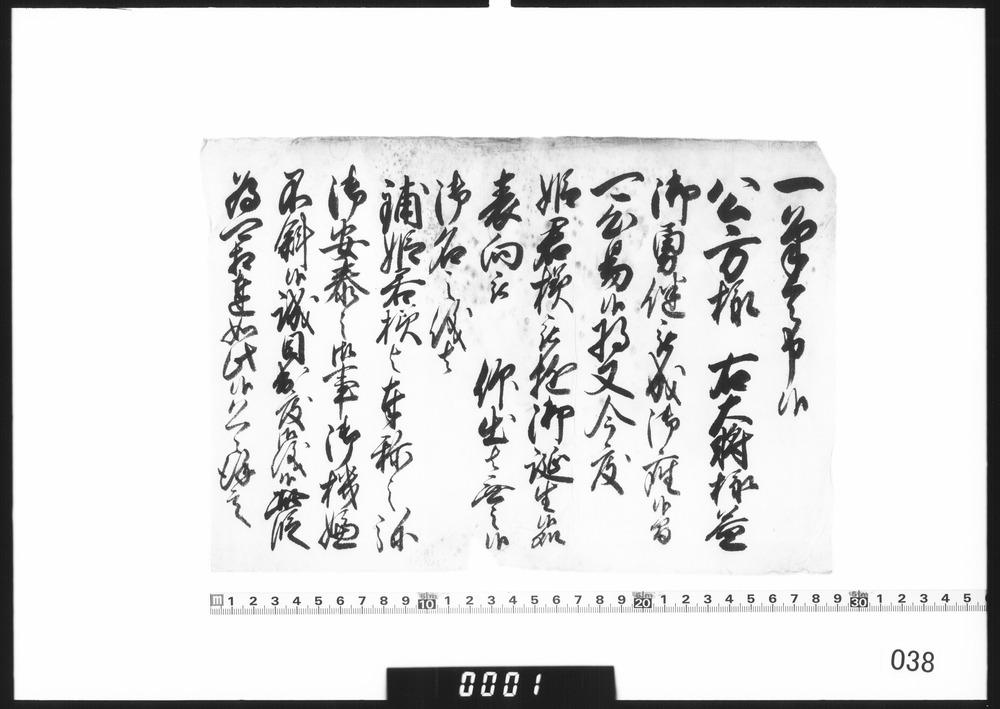 一筆令啓上候
公方様 右大将様益
御勇健被成御座候旨
可易候将又今度
姫君様被遊御誕生候処
表向被 仰出者無之候
御名之儀者
鋪姫君様与奉称之弥
御安泰之御事御機嫌
不斜候誠目出度御儀候此段
為可相達如此候恐々謹言
1 2 3 4 5 6 7 8 9 10 1 2 3 4 5 6 7 8 9 20 1 2 3 4 5 6 7 8 9 30 1 2 3 4 5
038
0001